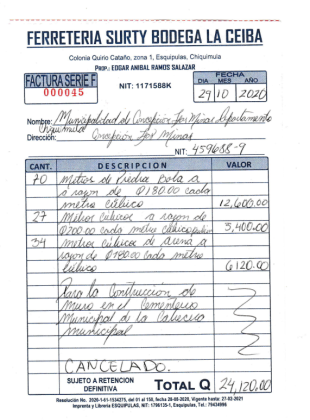 FERRETERIA SURTY BODEGA LA CEIBA
Colonia Quirio Cataño, zona 1, Esquipulas, Chiquimula
PROP.: EDGAR ANIBAL RAMOS SALAZAR
FACTURA SERIE F
000045
NIT: 1171588K
FECHA
DIA MES AÑO
29 10 2020
Nombre: Municipalidad de Concepción Las Minas Departamento
Chiquimula
Dirección: Concepción Las Minas
NIT: 459688-9
CANT. DESCRIPCION VALOR
70 Metros de Piedra Bola a
razon de Q180.00 cada
metro cúbico 12,600.00
27 Metros cúbicos a razon de
Q200.00 cada metro cúbico 5,400.00
34 metros cúbicos de arena a
razon de Q180.00 cada metro
cúbico 6120.00
Para la Contruccion de
Muro en el Cementerio
Municipal de la Cabecera
Municipal
CANCELADO.
SUJETO A RETENCION
DEFINITIVA
TOTAL Q 24,120.00
Imprenta y Libreria ESQUIPULAS, NIT: 1796135-1, Esquipulas, Tel.: 79434998